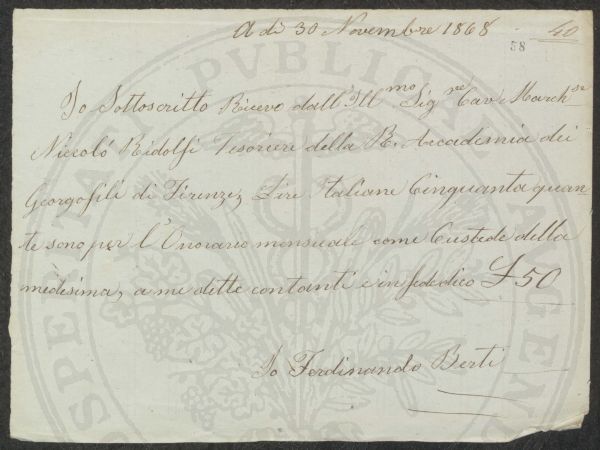 A dì 30 Novembre 1868
40
38
Io Sottoscritto Ricevo dall'Ill.mo Sig.re Cav. March.se
Niccoló Ridolfi Tesoriere della R. Accademia dei
Georgofili di Firenze, Lire Italiane Cinquanta quan-
te sono per l'Onorario mensuale come Custode della
medesima, a me dette contanti e in fede dico £ 50
Io Ferdinando Berti
PROSPERITA PUBLICAE AUGENDAE